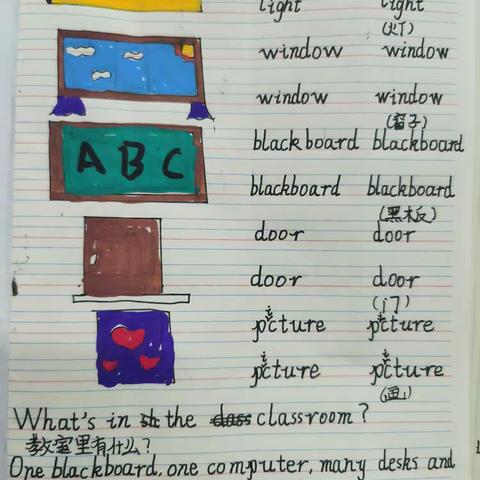 light light
(灯)
window window
window window
(窗子)
ABC
blackboard blackboard
blackboard blackboard
(黑板)
door door
door door
(门)
picture picture
picture picture
(画)
What's in the classroom?
教室里有什么?
One blackboard, one computer, many desks and